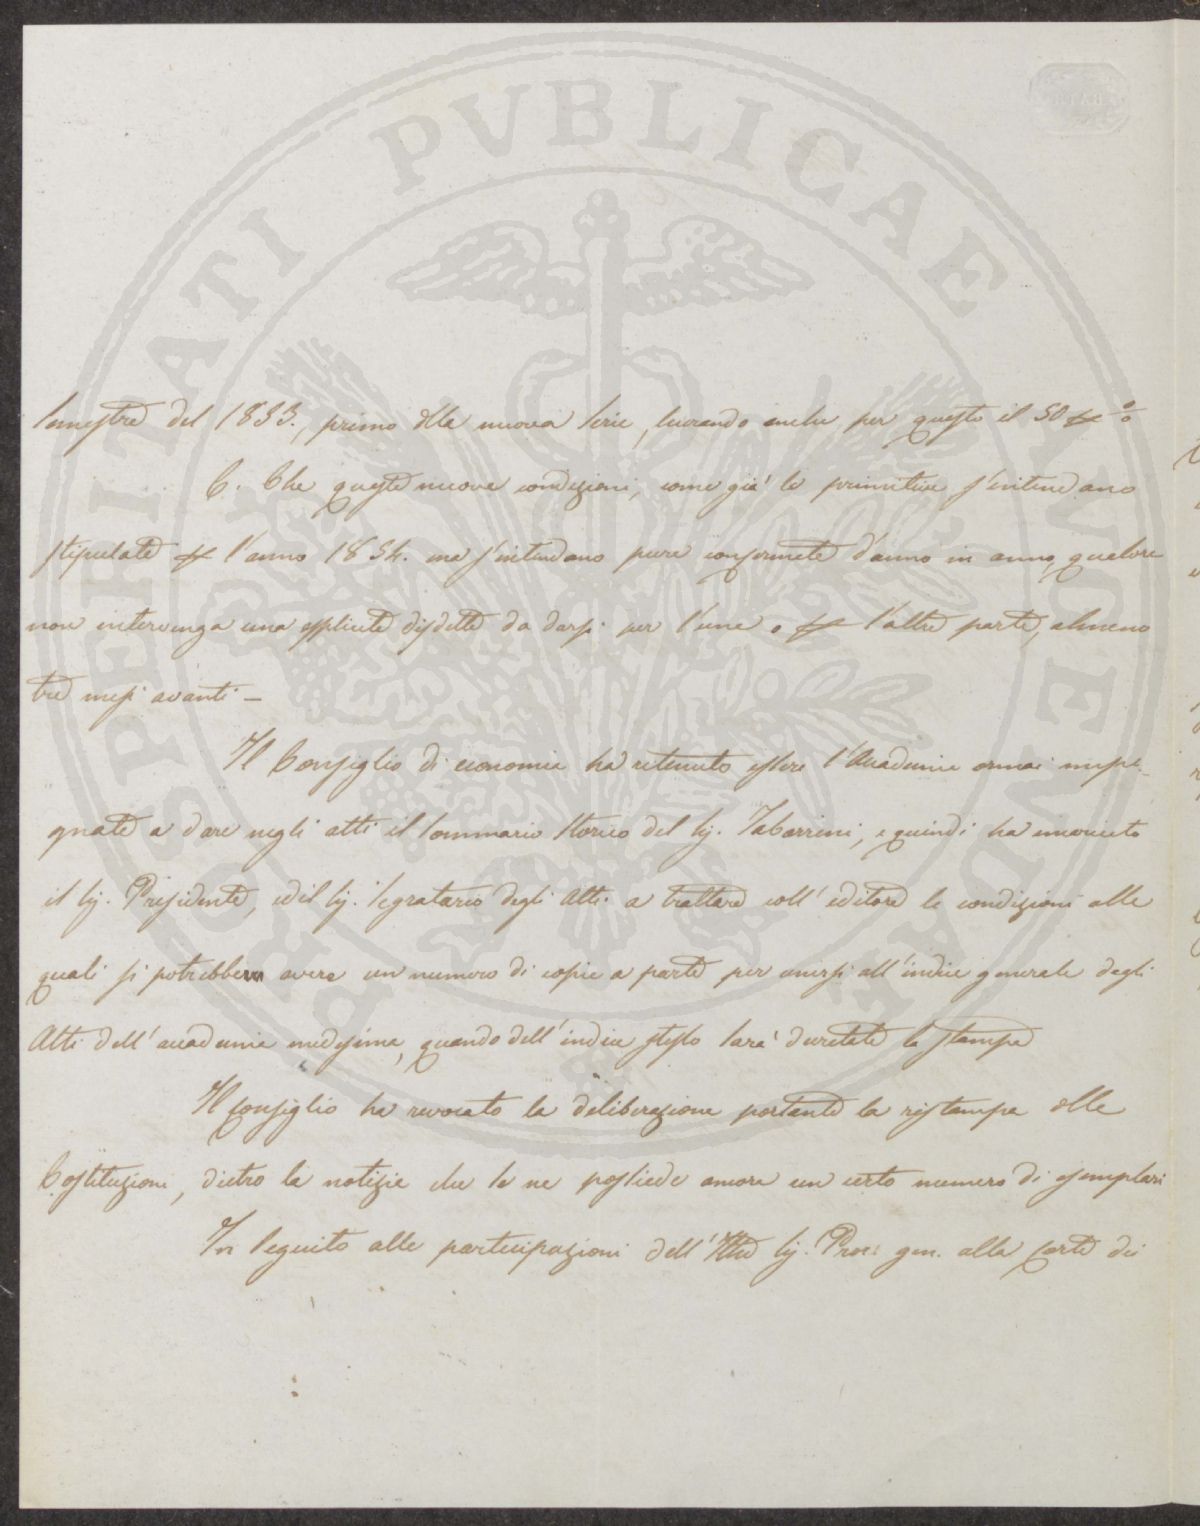 PROSPERITATI PUBLICAE AUGENDAE
Semestre del 1853., primo della nuova serie, lucrando anche per questo il 50 p %
6. Che queste nuove condizioni, come già le primitive s'intendano
stipulate p l'anno 1854. ma s'intendano pure confermate d'anno in anno, qualora
non intervenga una esplicita disdetta da darsi per l'una o p l'altra parte, almeno
tre mesi avanti —
Il Consiglio di economia ha ritenuto essere l'Accademia ormai impe-
gnata a dare negli atti il Sommario Storico del Sig. Tabarrini, e quindi ha incaricato
il Sig. Presidente, ed il Sig. Segretario degli Atti a trattare coll'editore le condizioni alle
quali si potrebbero avere un numero di copie a parte per unirsi all'indice generale degli
Atti dell'accademia medesima, quando dell'indice stesso sarà decretata la stampa
Il Consiglio ha revocato la deliberazione portante la ristampa delle
Costituzioni, dietro la notizia che se ne possiede ancora un certo numero di esemplari
In seguito alle partecipazioni dell'Illmo Sig. Proc. gen. alla Corte dei